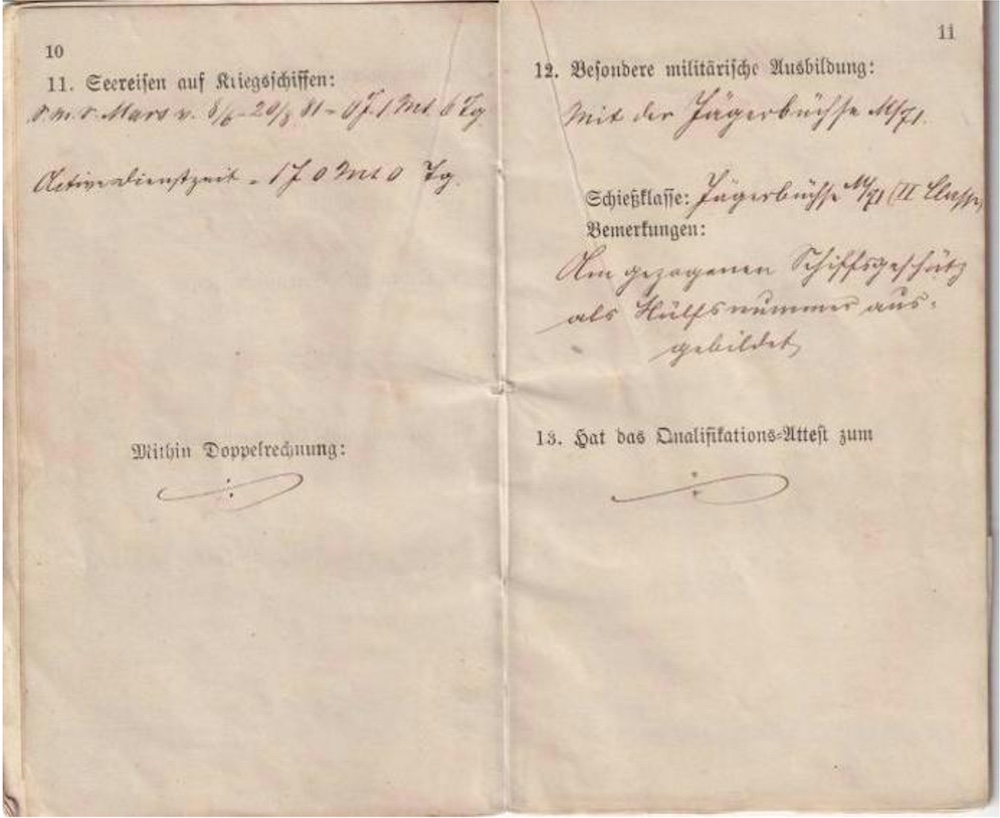 10
11. Seereisen auf Kriegsschiffen:
S. M. S. Mars v. 8/6 - 20/8 81 = 0 J. 1 Mt. 6 Tg.
Activedienstzeit = 1 J 0 Mt 0 Tg.
Mithin Doppelrechnung:
11
12. Besondere militärische Ausbildung:
Mit der Jägerbüchse M/71.
Schießklasse: Jägerbüchse M/71 (II Classe)
Bemerkungen:
Am gezogenen Schiffsgeschütz
als Hülfsnummer aus-
gebildet
13. Hat das Qualifikations-Attest zum